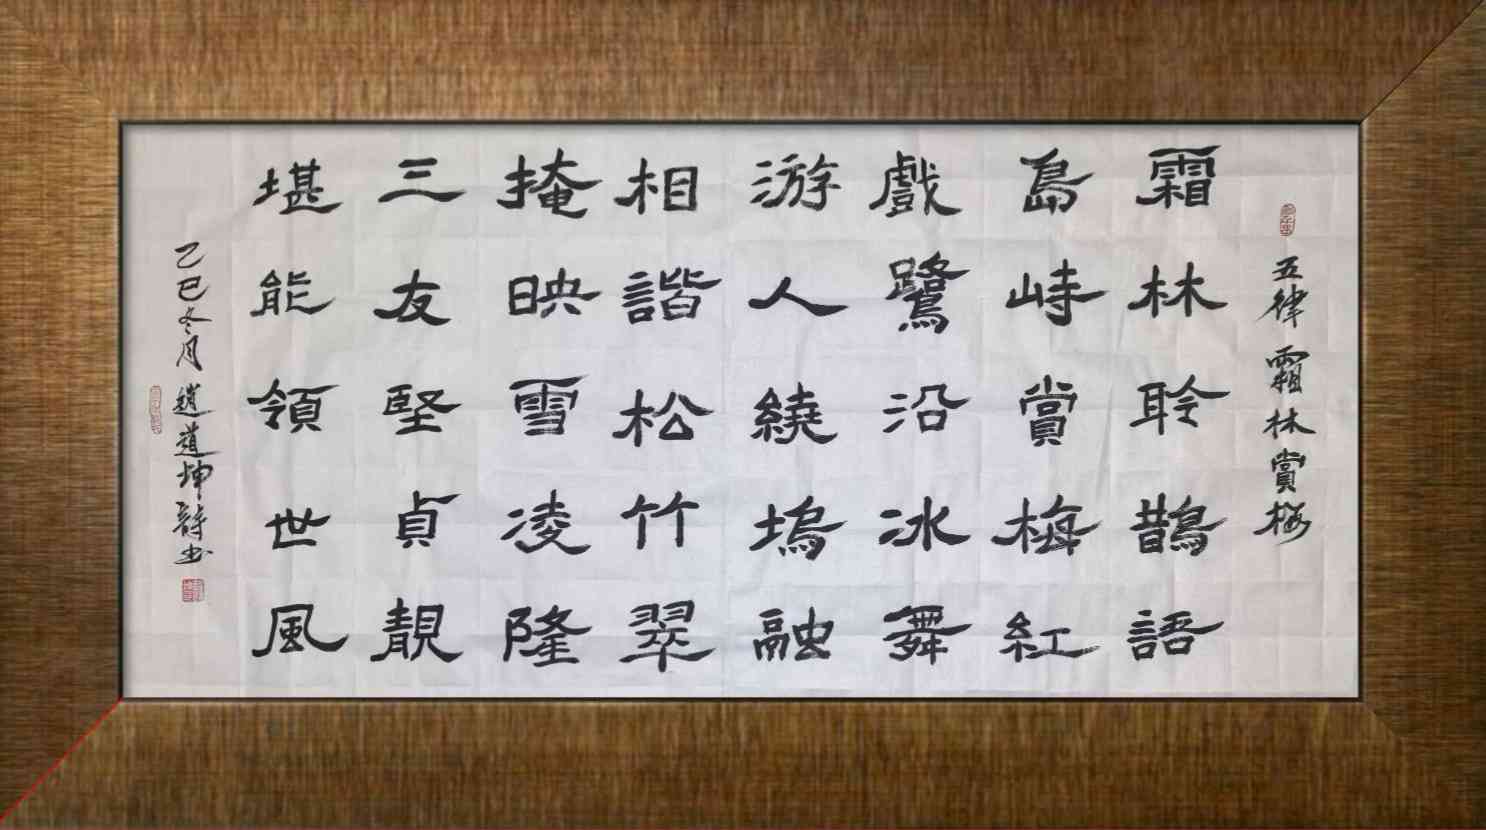 五律 霜林賞梅
霜林聆鵲語
島峙賞梅紅
戲鷺沿冰舞
游人繞塢融
相諧松竹翠
掩映雪凌隆
三友堅貞靚
堪能領世風
乙巳冬月 趙道坤詩书